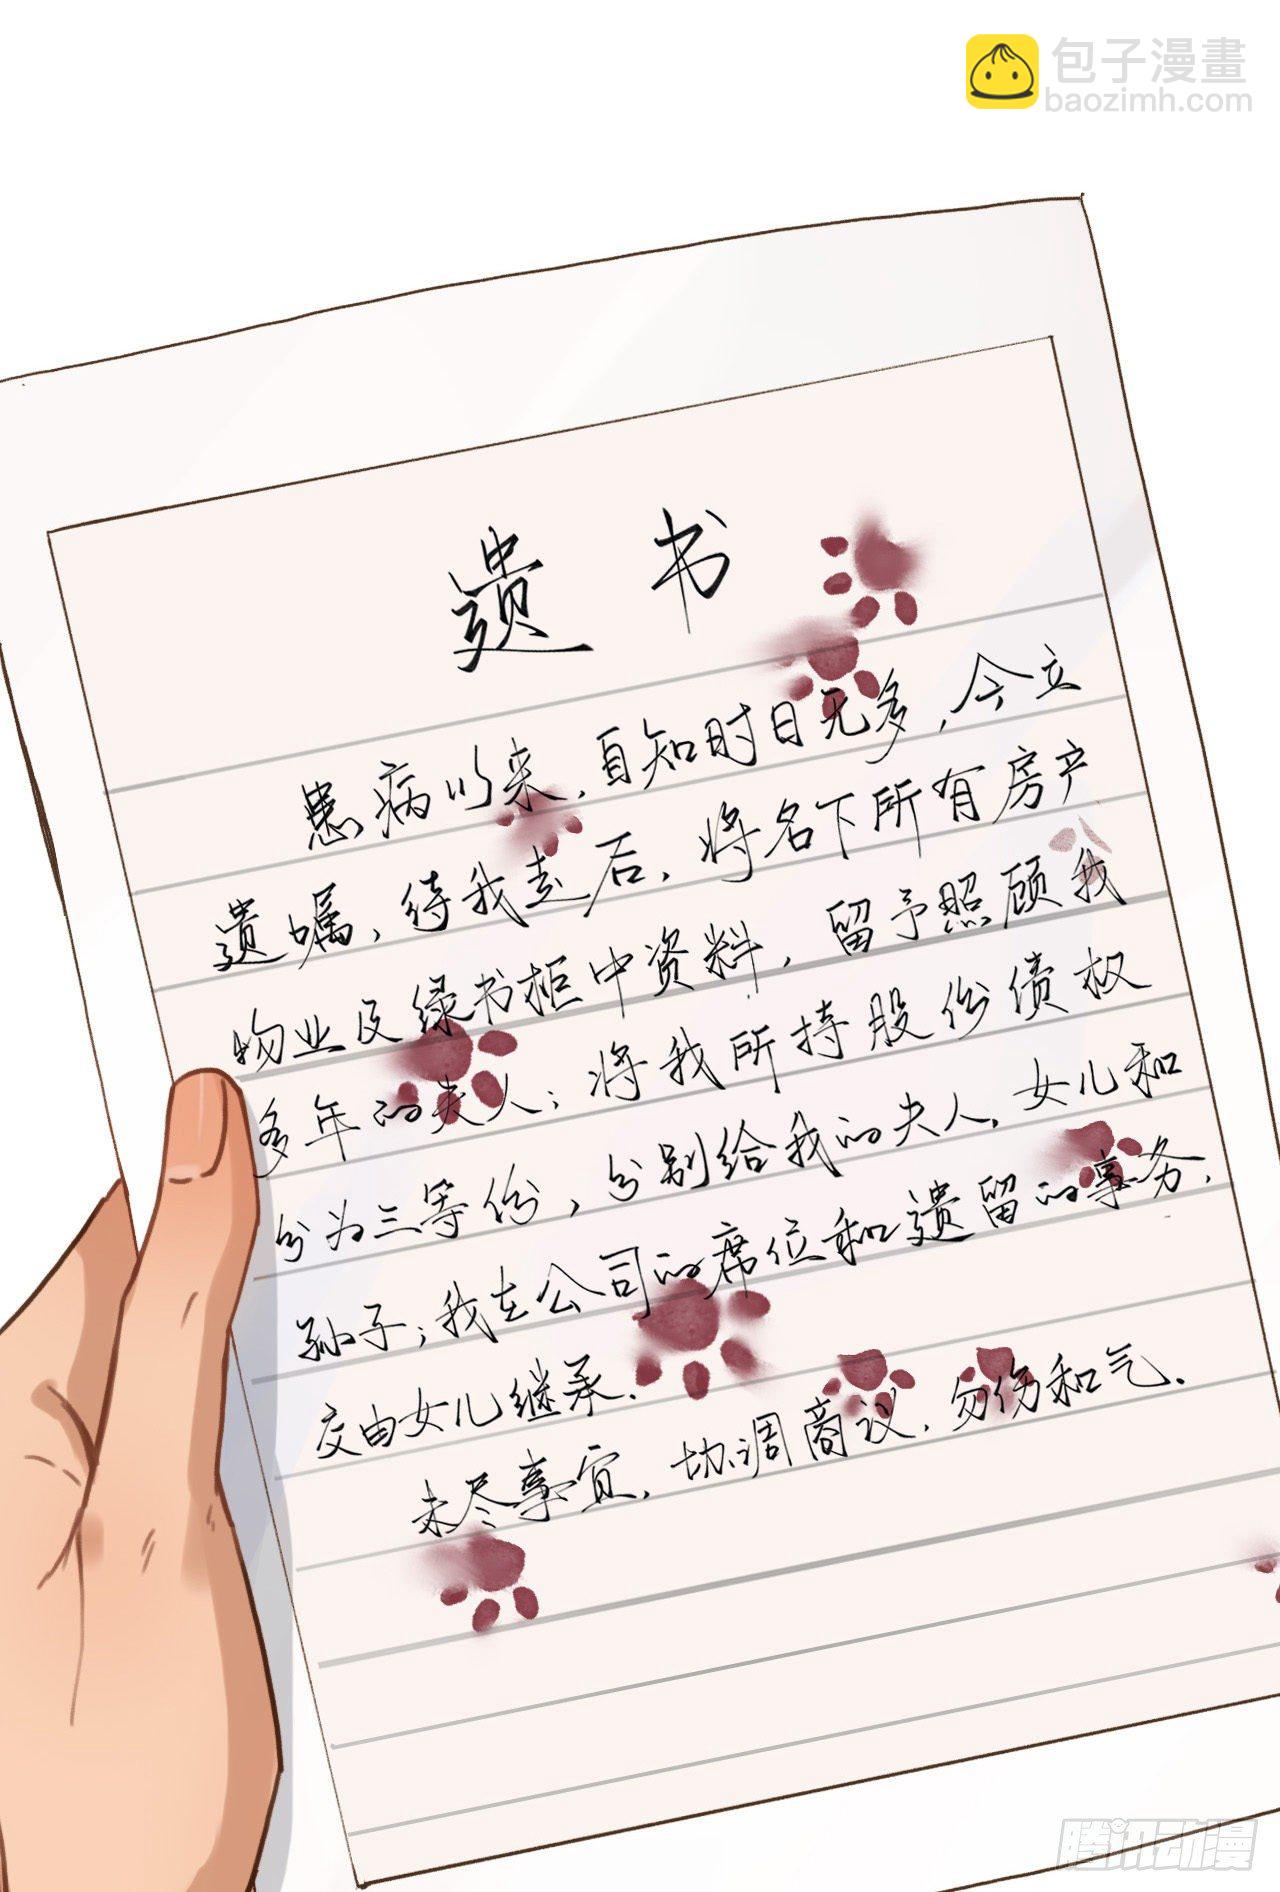 包子漫畫
baozimh.com
遗书
患病以来,自知时日无多,今立
遗嘱,待我走后,将名下所有房产
物业及绿书柜中资料,留予照顾我
多年的夫人;将我所持股份债权
分为三等份,分别给我的夫人、女儿和
孙子;我在公司的席位和遗留的事务,
交由女儿继承.
未尽事宜,协调商议,勿伤和气.
腾讯动漫